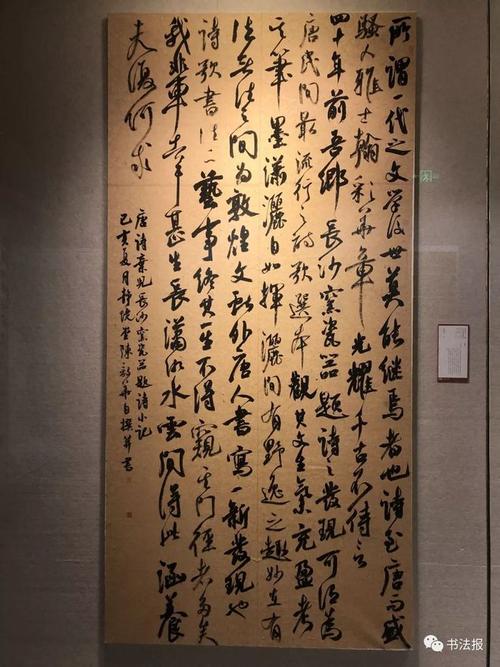 所謂一代之文學後世莫能繼焉者也詩至唐而盛
騷人雅士翰彩華章光耀千古不待言
四十年前吾鄉長沙窯瓷器題詩之發現可謂為
唐民間最流行之詩歌選本觀其文生氣充盈考
其筆墨瀟灑自如揮灑間有野逸之趣妙在有
法無法之間為敦煌文獻外唐人書寫一新發現也
詩歌書法二藝事終其一生不得窺其門徑者多矣
我輩幸甚生長瀟湘水雲間得此涵養
夫復何求
唐詩彙見長沙窯瓷器題詩小記
己亥夏月静壹堂陳新華自撰并書
书法报